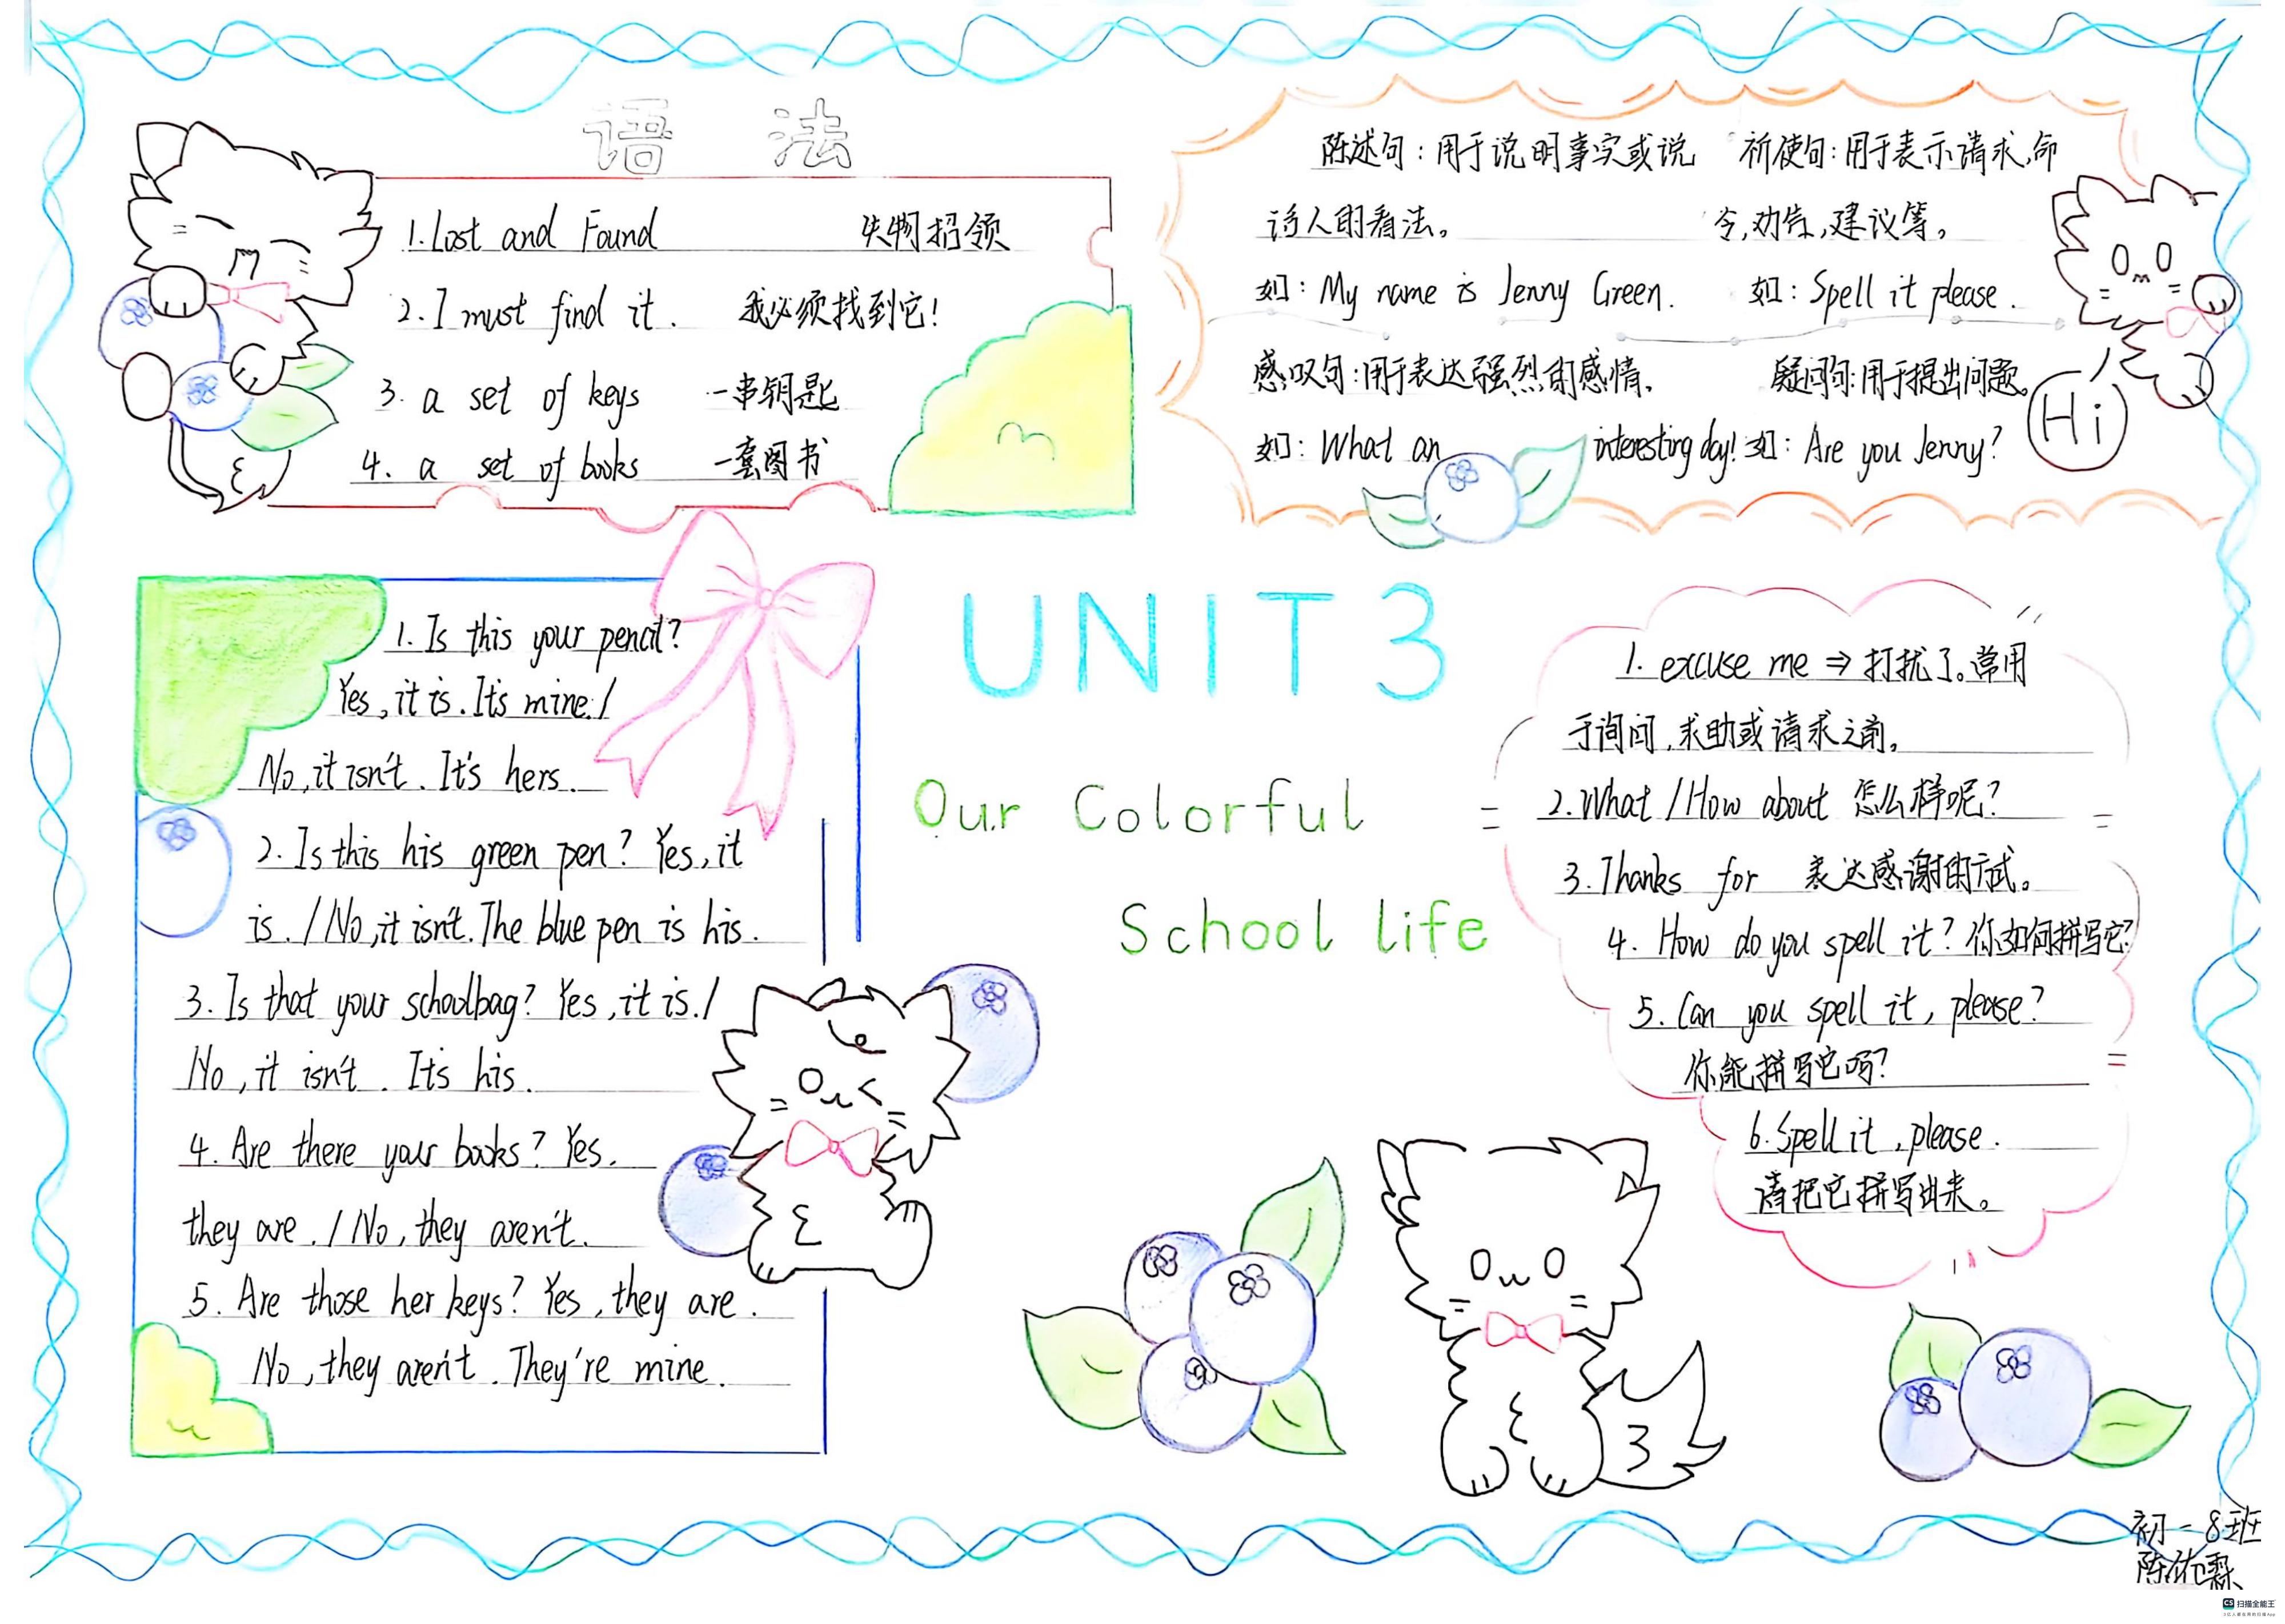 语 法
1. Lost and Found 失物招领
2. I must find it. 我必须找到它!
3. a set of keys 一串钥匙
4. a set of books 一套图书
陈述句:用于说明事实或说
话人的看法。
如: My name is Jenny Green.
祈使句:用于表示请求,命
令,劝告,建议等。
如: Spell it please.
感叹句:用于表达强烈的感情.
如: What an interesting day!
疑问句:用于提出问题。
如: Are you Jenny?
Hi
UNIT 3
Our Colorful
School life
1. Is this your pencil?
Yes, it is. It's mine. /
No, it isn't. It's hers.
2. Is this his green pen? Yes, it
is. / No, it isn't. The blue pen is his.
3. Is that your schoolbag? Yes, it is. /
No, it isn't. It's his.
4. Are there your books? Yes.
they are. / No, they aren't.
5. Are those her keys? Yes, they are.
No, they aren't. They're mine.
1. excuse me ⇒ 打扰了。常用
于询问,求助或请求之前。
2. What / How about 怎么样呢?
3. Thanks for 表达感谢的方式。
4. How do you spell it? 你如何拼写它?
5. Can you spell it, please?
你能拼写它吗?
6. Spell it, please.
请把它拼写出来。
3
初一8班
陈佑霖
CS 扫描全能王
3亿人都在用的扫描App